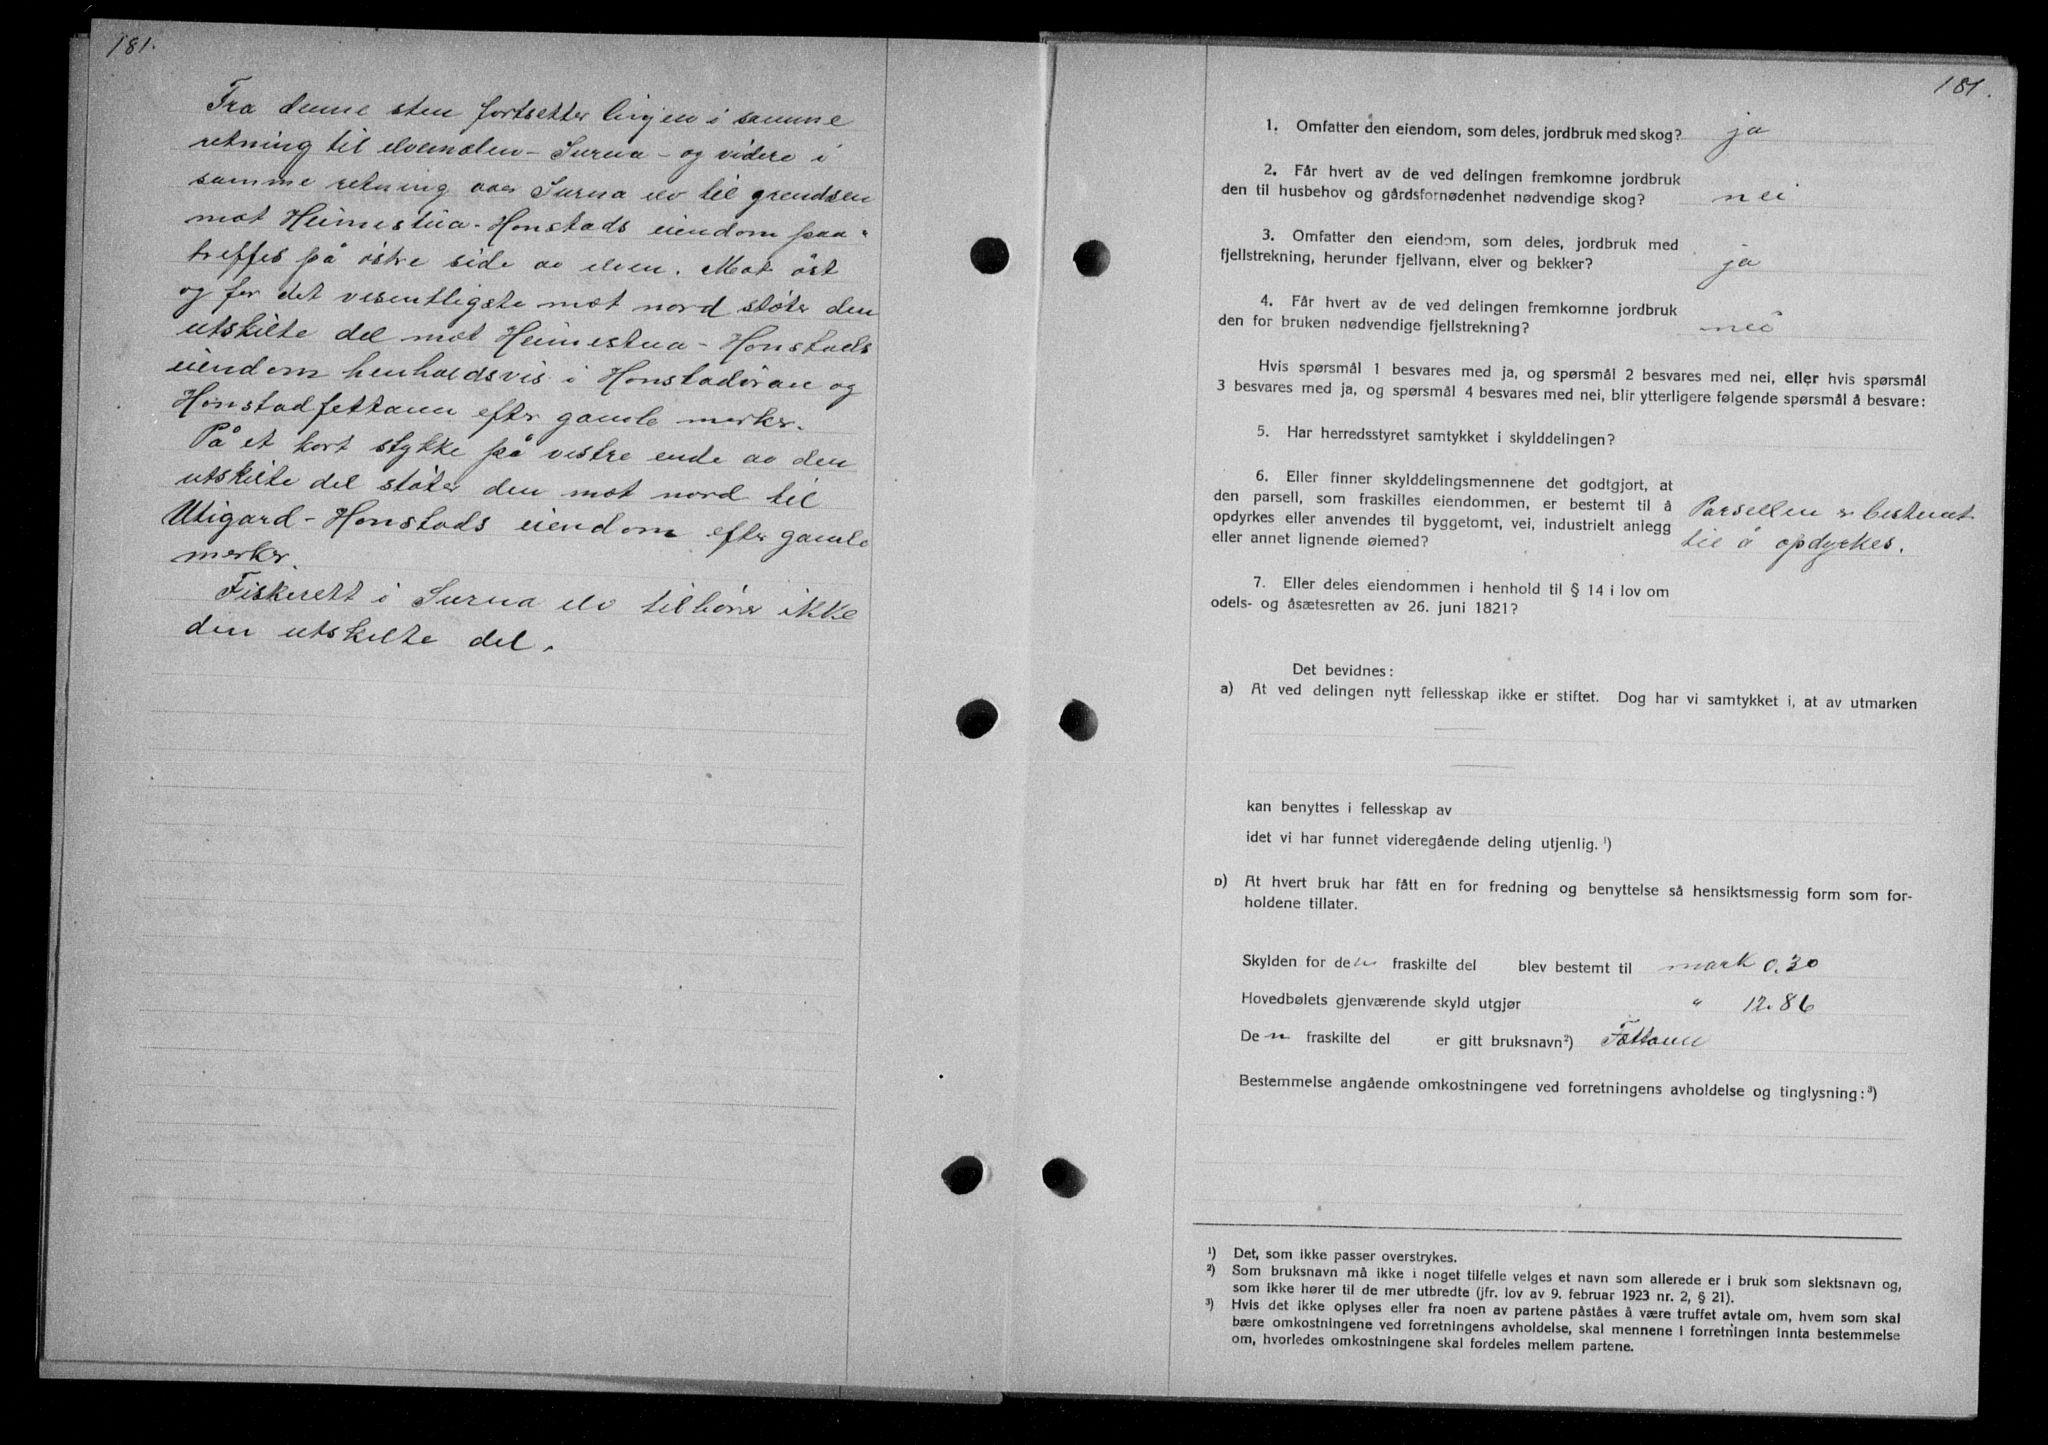 181.
Fra denne sten fortsetter linjen i samme
retning til elvemælen - Surna - og videre i
samme retning over Surna elv til grendsen
mot Heimestua - Honstads eiendom paa-
treffes på østre side av elven. Mot øst
og for det vesentligste mot nord støter den
utskilte del mot Heimestua - Honstads
eiendom henholdsvis i Honstadøran og
Honstadfettann efter gamle merker.
På et kort stykke på vestre ende av den
utskilte del støter den mot nord til
Utigard - Honstads eiendom efter gamle
merker.
Fiskerett i Surna elv tilhører ikke
den utskilte del.
181.
1. Omfatter den eiendom, som deles, jordbruk med skog? ja
2. Får hvert av de ved delingen fremkomne jordbruk
den til husbehov og gårdsfornødenhet nødvendige skog? nei
3. Omfatter den eiendom, som deles, jordbruk med
fjellstrekning, herunder fjellvann, elver og bekker? ja
4. Får hvert av de ved delingen fremkomne jordbruk
den for bruken nødvendige fjellstrekning? nei
Hvis spørsmål 1 besvares med ja, og spørsmål 2 besvares med nei, eller hvis spørsmål
3 besvares med ja, og spørsmål 4 besvares med nei, blir ytterligere følgende spørsmål å besvare:
5. Har herredsstyret samtykket i skylddelingen?
6. Eller finner skylddelingsmennene det godtgjort, at
den parsell, som fraskilles eiendommen, er bestemt til å
opdyrkes eller anvendes til byggetomt, vei, industrielt anlegg
eller annet lignende øiemed?
Parsellen er bestemt
til å opdyrkes.
7. Eller deles eiendommen i henhold til § 14 i lov om
odels- og åsætesretten av 26. juni 1821?
Det bevidnes:
a) At ved delingen nytt fellesskap ikke er stiftet. Dog har vi samtykket i, at av utmarken
kan benyttes i fellesskap av
idet vi har funnet videregående deling utjenlig. ¹)
b) At hvert bruk har fått en for fredning og benyttelse så hensiktsmessig form som for-
holdene tillater.
Skylden for den fraskilte del blev bestemt til mark 0.30
Hovedbølets gjenværende skyld utgjør " 12.86
Den fraskilte del er gitt bruksnavn²) Fættann
Bestemmelse angående omkostningene ved forretningens avholdelse og tinglysning: ³)
¹) Det, som ikke passer overstrykes.
²) Som bruksnavn må ikke i noget tilfelle velges et navn som allerede er i bruk som slektsnavn og,
som ikke hører til de mer utbredte (jfr. lov av 9. februar 1923 nr. 2, § 21).
³) Hvis det ikke oplyses eller fra noen av partene påståes å være truffet avtale om, hvem som skal
bære omkostningene ved forretningens avholdelse, skal mennene i forretningen innta bestemmelse
om, hvorledes omkostningene skal fordeles mellem partene.